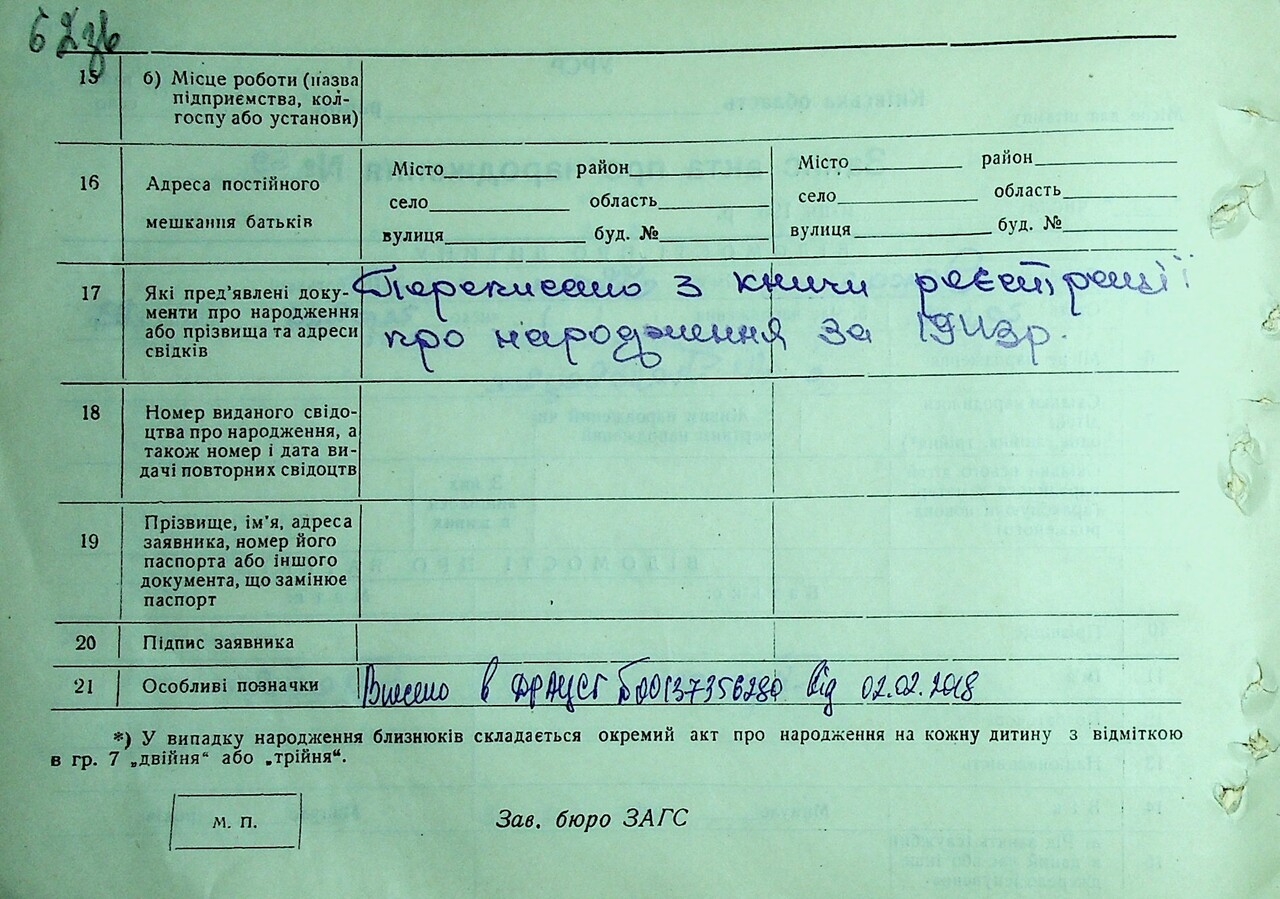 6 Язв
15 б) Місце роботи (назва
підприємства, кол-
госпу або установи)
16 Адреса постійного
мешкання батьків
Місто район
село область
вулиця буд. №
Місто район
село область
вулиця буд. №
17 Які пред'явлені доку-
менти про народження
або прізвища та адреси
свідків
Переписано з книги реєстрації
про народження за 1943р.
18 Номер виданого свідо-
цтва про народження, а
також номер і дата ви-
дачі повторних свідоцтв
19 Прізвище, ім'я, адреса
заявника, номер його
паспорта або іншого
документа, що замінює
паспорт
20 Підпис заявника
21 Особливі позначки
Внесено в ДРАЦСГ 00137356280 від 02.02.2018
*) У випадку народження близнюків складається окремий акт про народження на кожну дитину з відміткою
в гр. 7 „двійня“ або „трійня“.
м. п.
Зав. бюро ЗАГС